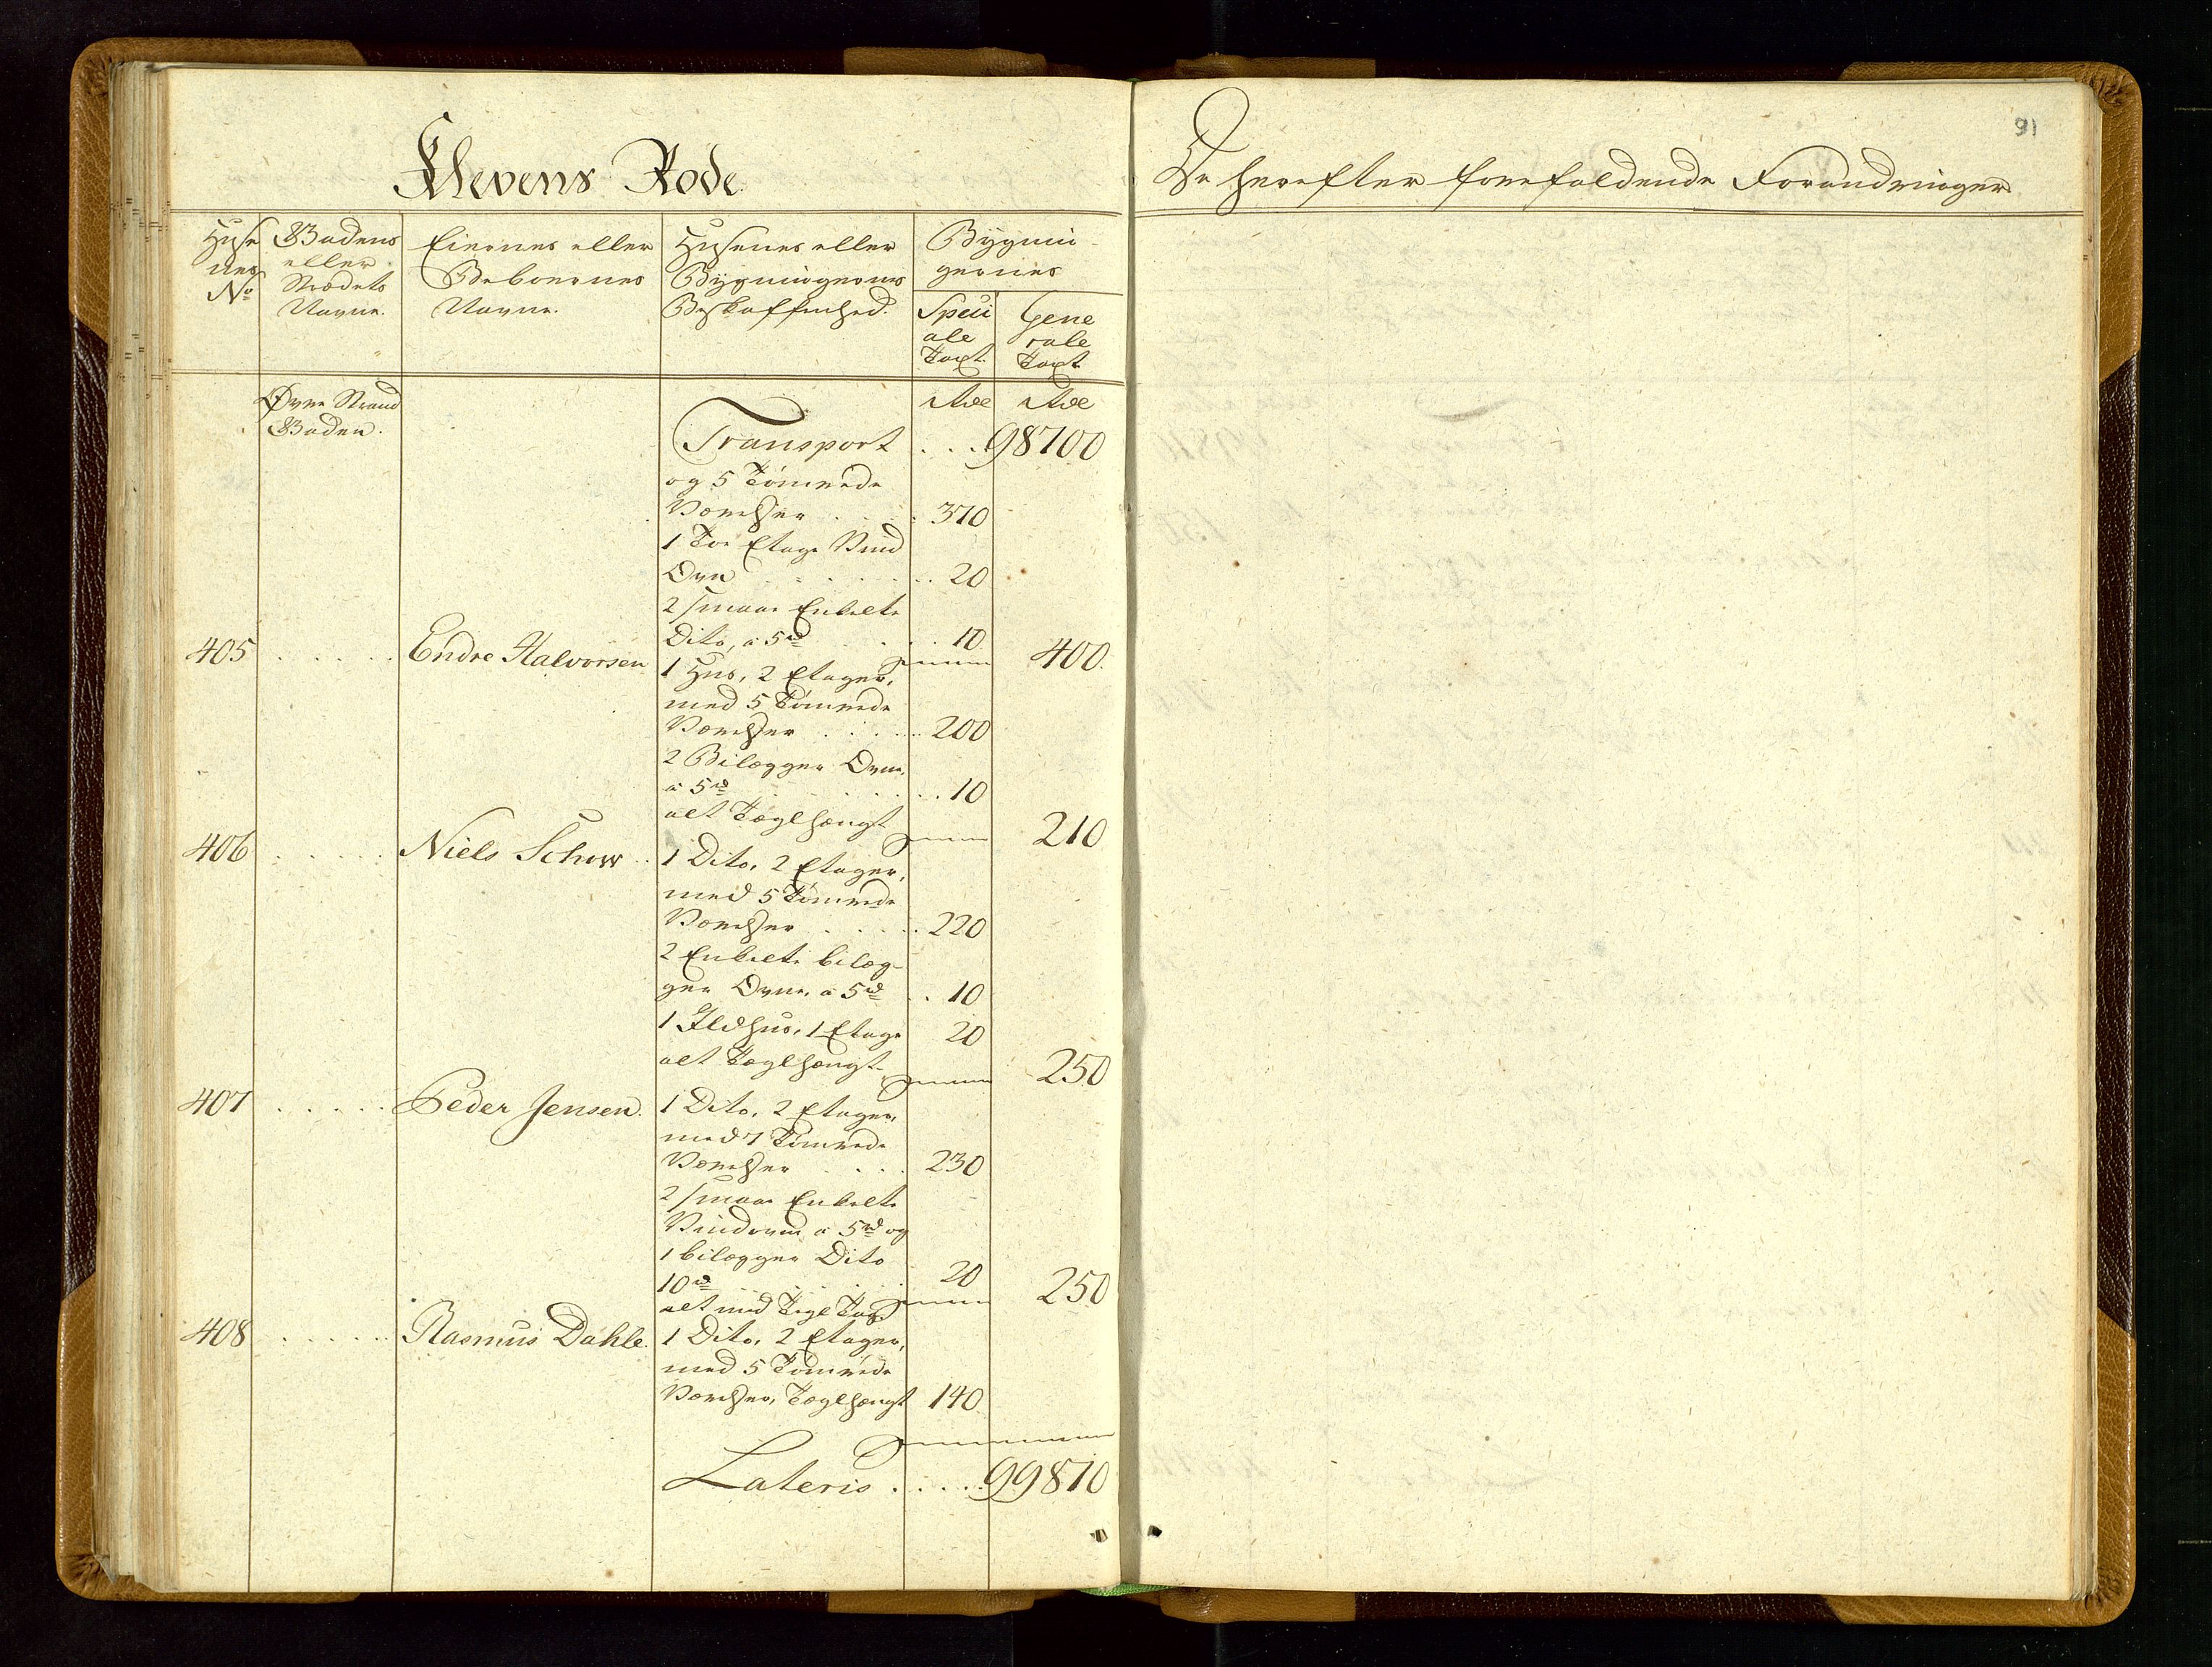 Klevens Rode
Huse
nes
No
Gadens
eller
Strædets
Navne.
Eiernes eller
Beboernes
Navne.
Husenes eller
Bygningernes
Beskaffenhed.
Bygnin
gernes
Speci
ale
Taxt.
Gene
rale
Taxt.
Øvre Strand
Gaden.
Rdl Rdl
Transport . . . 98700
og 5 Tömrede
Værelser . . . . 370
1 Toe Etage Vind
Ovn . . . . . . . 20
2 smaae Enkelte
Dito, a 5rd . . . . 10 400.
405 . . . . . Endre Halvorsen
1 Huus, 2 Etager,
med 5 Tömrede
Værelser . . . . . 200
2 Bilægger Ovne,
a 5rd . . . . . . . . 10
alt Teglhængt 210
406 . . . . . Niels Schow . . 1 Dito, 2 Etager,
med 5 Tömrede
Værelser . . . . . 220
2 Enkelte bilæg-
ger Ovne, a 5rd . . 10
1 Ildhus, 1 Etage 20
alt Teglhængt 250
407 . . . . . Peder Jensen. 1 Dito, 2 Etager,
med 7 Tömrede
Værelser . . . . 230
2 smaae Enkelte
Vindovne a 5rd og
1 bilægger Dito
10rd . . . . . . . 20 250
alt med Tegl Tag
408 . . . . . Rasmus Dahle. 1 Dito, 2 Etager,
med 5 Tömrede
Værelser, Teglhængt 140
Lateris . . . . . 99870
91
De herefter forefaldende Forandringer